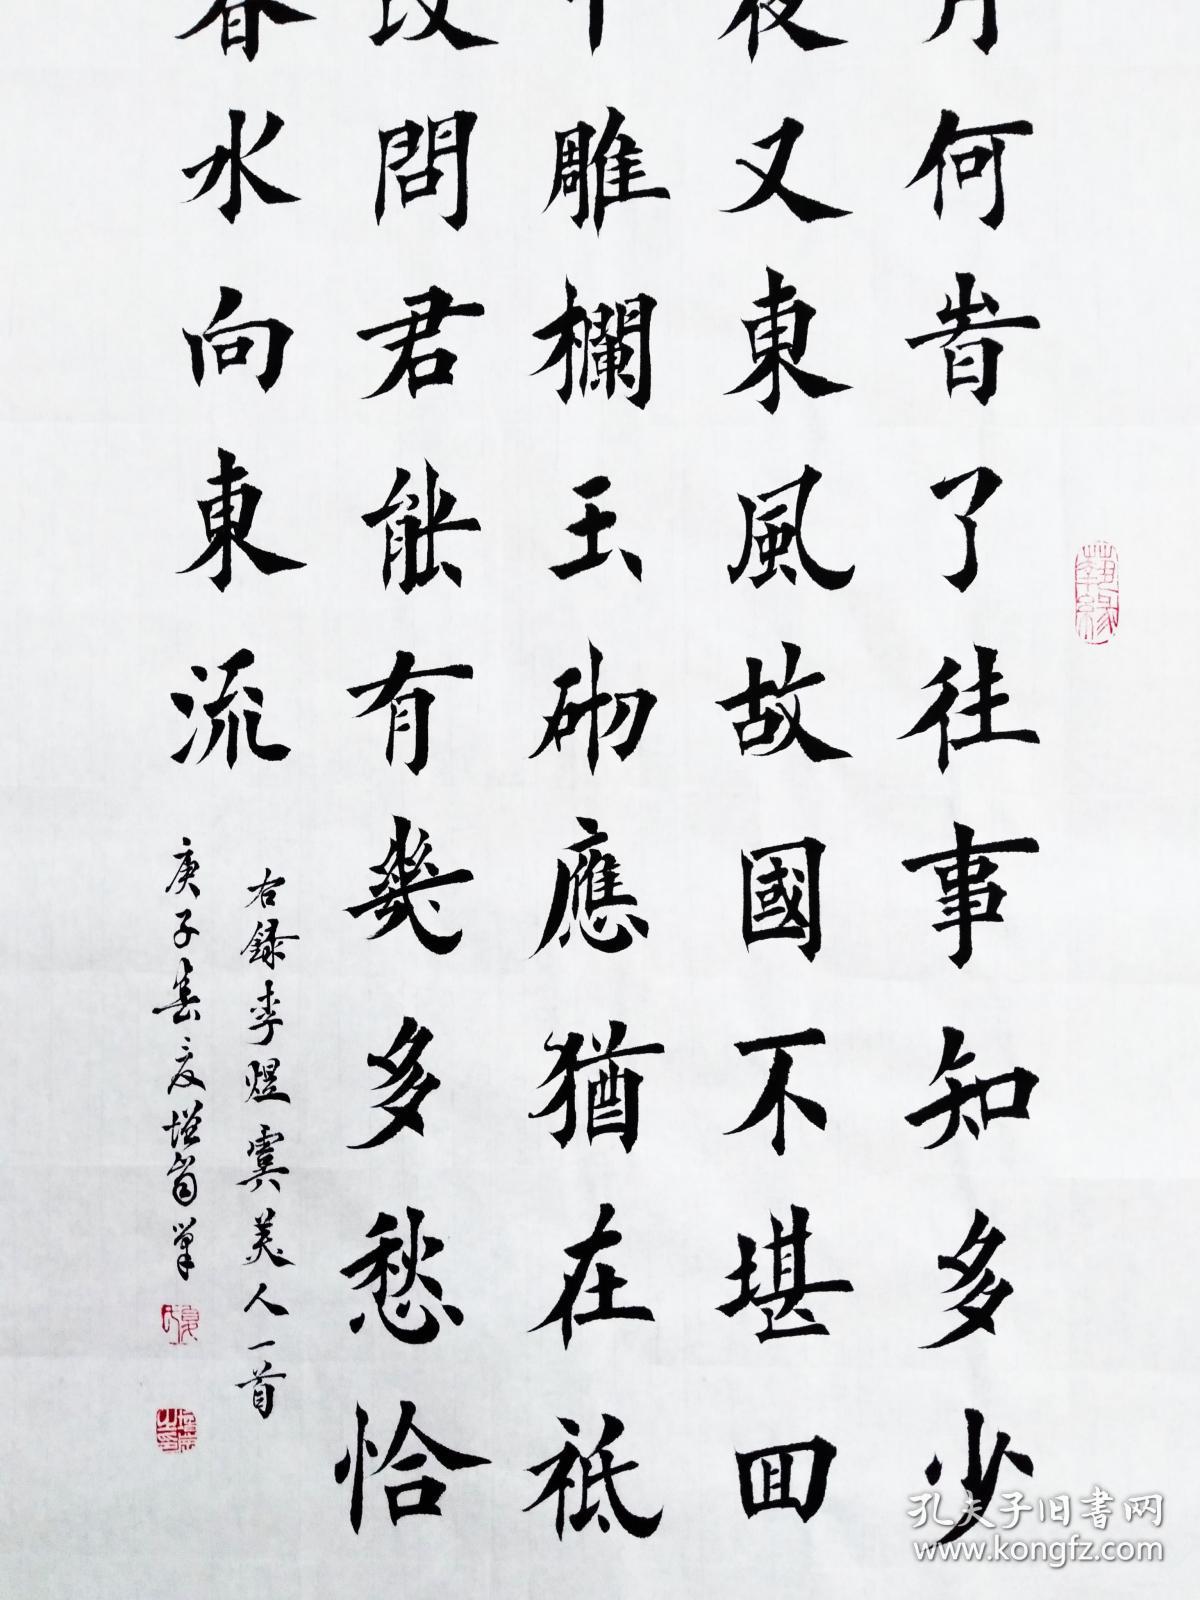 月何旹了往事知多少
夜又東風故國不堪回
中雕欄玉砌應猶在祗
改問君能有幾多愁恰
春水向東流
右録李煜虞美人一首
庚子春彥增省筆
藝緣
孔夫子旧书网
www.kongfz.com